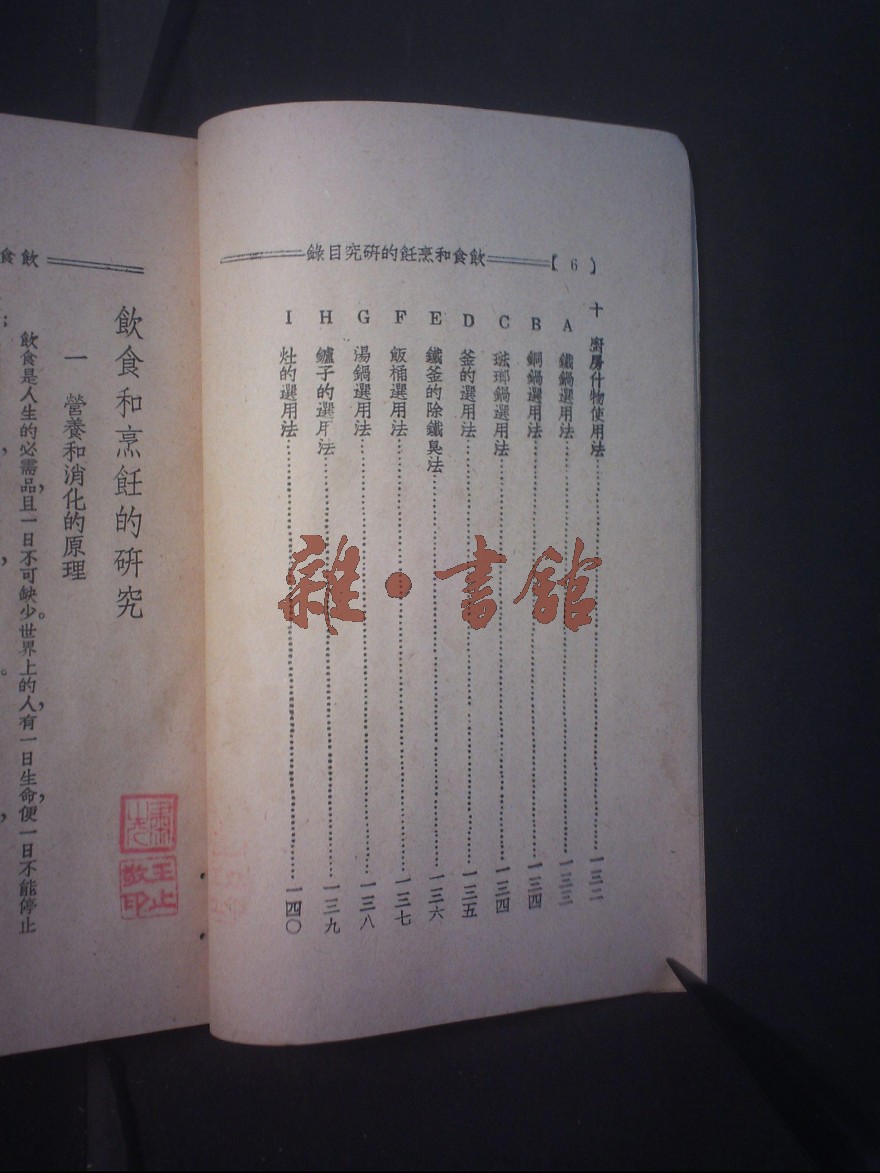 【6】
飲食和烹飪的研究目錄
十 廚房什物使用法……一三二
A 鐵鍋選用法……一三三
B 銅鍋選用法……一三四
C 琺瑯鍋選用法……一三四
D 釜的選用法……一三五
E 鐵釜的除鐵臭法……一三六
F 飯桶選用法……一三七
G 湯鍋選用法……一三八
H 鑪子的選用法……一三九
I 灶的選用法……一四〇
雜·書館
飲食
飲食和烹飪的研究
一 營養和消化的原理
飲食是人生的必需品，且一日不可缺少。世界上的人，有一日生命，便一日不能停止
王止敬印